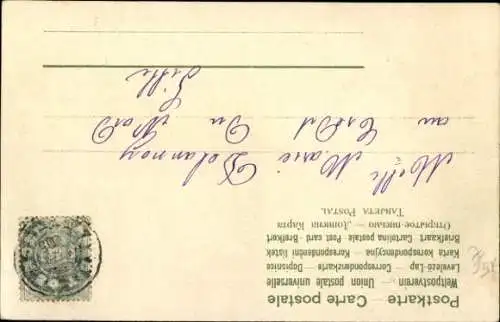 Postkarte — Carte postale
Weltpostverein — Union postale universelle
Levelező-Lap — Correspondenzkarte — Dopisnice
Karta korespondencyjna — Korespondenční lístek
Briefkaart — Cartolina postale — Post card — Brefkort
Открытое письмо — Дописни Карта
Tarjeta Postal
Melle Marie
au Crédit Du Nord
Lille